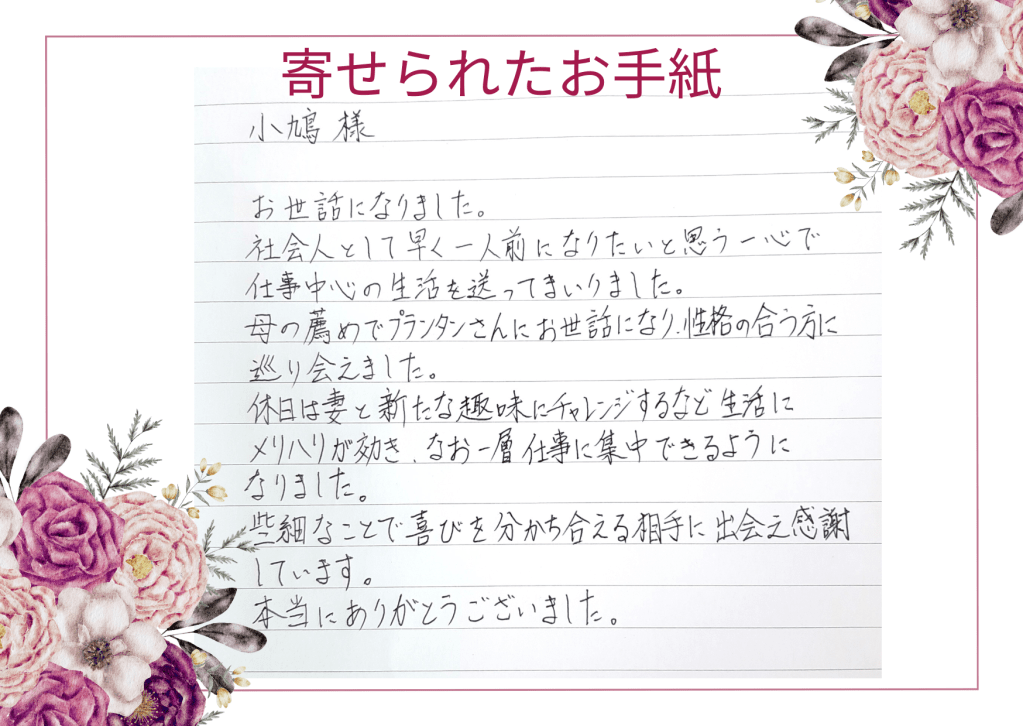 寄せられたお手紙
小鳩 様
お世話になりました。
社会人として早く一人前になりたいと思う一心で
仕事中心の生活を送ってまいりました。
母の薦めでプランタンさんにお世話になり、性格の合う方に
巡り会えました。
休日は妻と新たな趣味にチャレンジするなど生活に
メリハリが効き、なお一層仕事に集中できるように
なりました。
些細なことで喜びを分かち合える相手に出会え感謝
しています。
本当にありがとうございました。